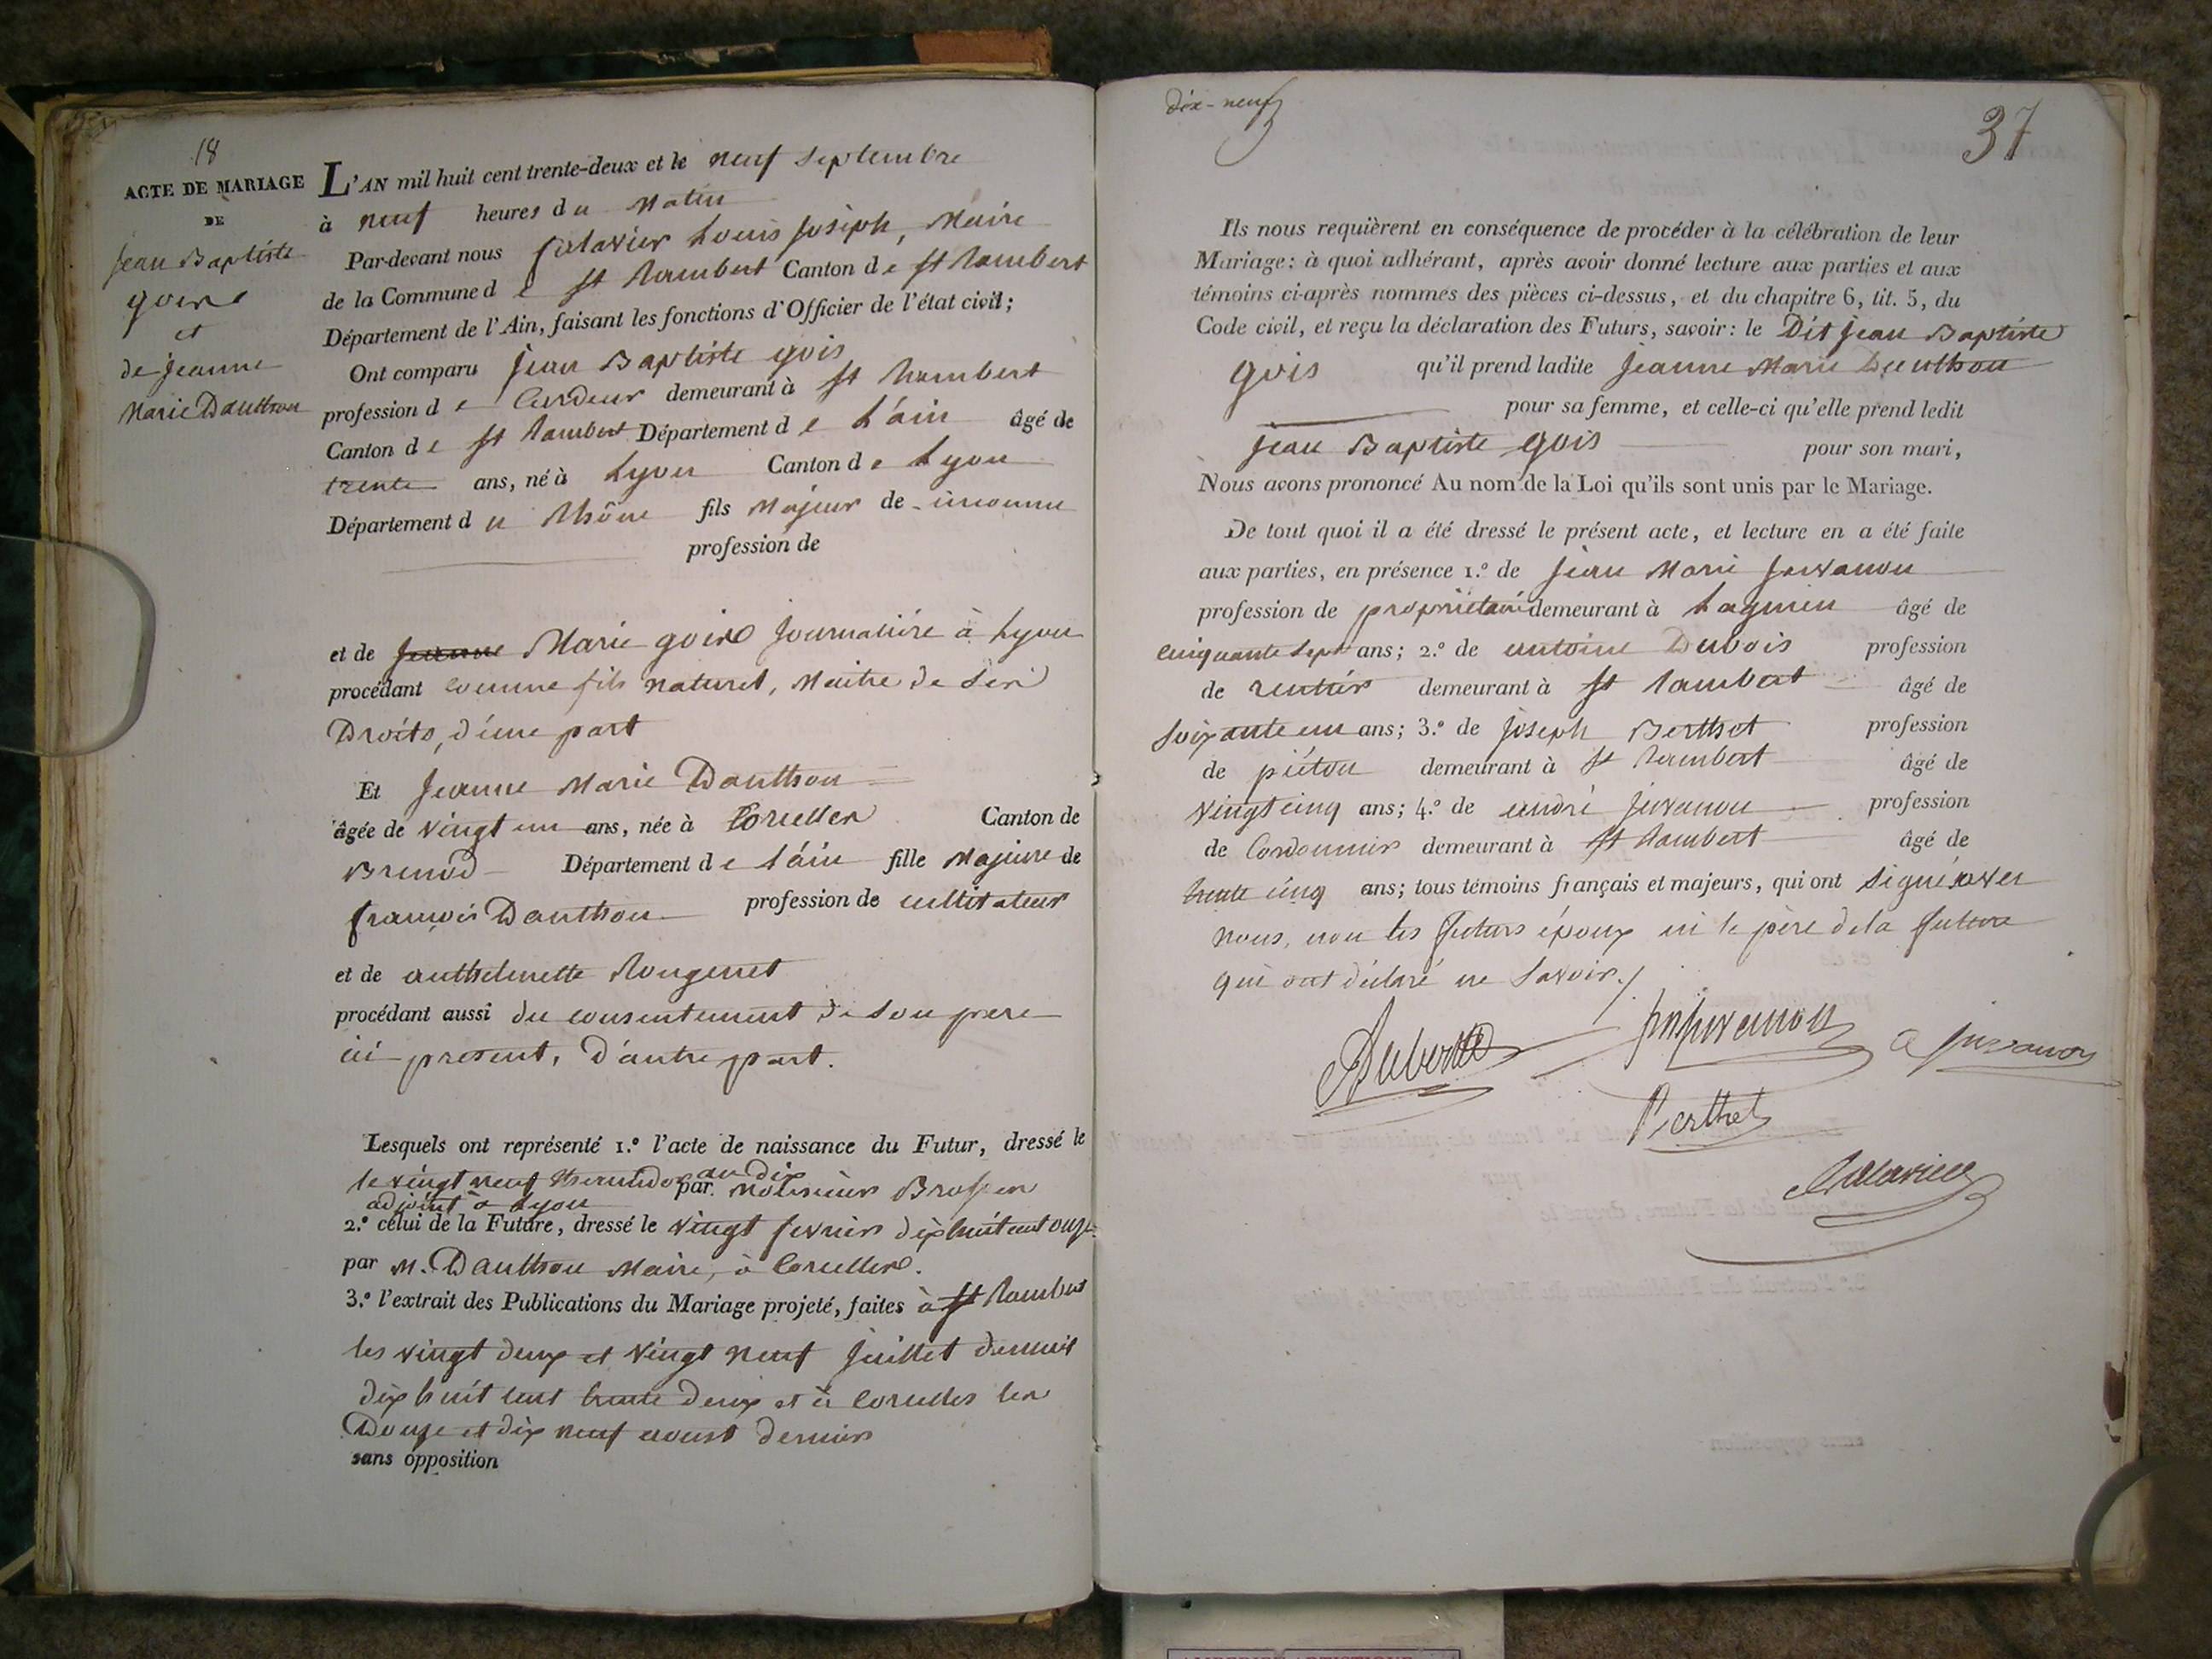 18
ACTE DE MARIAGE
DE
Jean Baptiste
goire
et
de jeanne
Marie Dauthon
L'AN mil huit cent trente-deux et le neuf septembre
à neuf heures du Matin
Par-devant nous Louis Joseph, Maire
de la Commune de St Rambert Canton de St Rambert
Département de l'Ain, faisant les fonctions d'Officier de l'état civil;
Ont comparu jean Baptiste gois
profession de demeurant à St Rambert
Canton de St Rambert Département de L'ain âgé de
trente ans, né à Lyon Canton de Lyon
Département du Rhône fils Majeur de inconnu
profession de
et de Marie goire journalière à Lyon
procédant comme fils naturel, Maitre de ses
Droits, d'une part
Et Jeanne Marie Dauthon
âgée de vingt un ans, née à Corcelles Canton de
Brenod Département de l'áin fille Majeure de
françois Dauthon profession de cultivateur
et de anthelmette Rougemet
procédant aussi du consentement de son pere
ici present, D'autre part.
Lesquels ont représenté 1.º l'acte de naissance du Futur, dressé le
le vingt neuf thermidor an dix par Monsieur
adjoint à Lyon
2.º celui de la Future, dressé le vingt fevrier dix huit cent onze
par M. Dauthon Maire, à Corcelles.
3.º l'extrait des Publications du Mariage projeté, faites à St Rambert
les vingt deux et vingt neuf juillet dernier
dix huit cent trente deux et à Corcelles les
Douze et dix neuf aoust dernier
sans opposition
dix-neuf
37
Ils nous requièrent en conséquence de procéder à la célébration de leur
Mariage: à quoi adhérant, après avoir donné lecture aux parties et aux
témoins ci-après nommés des pièces ci-dessus, et du chapitre 6, tit. 5, du
Code civil, et reçu la déclaration des Futurs, savoir: le Dit jean Baptiste
gois qu'il prend ladite jeanne Marie Dauthon
pour sa femme, et celle-ci qu'elle prend ledit
jean Baptiste gois pour son mari,
Nous avons prononcé Au nom de la Loi qu'ils sont unis par le Mariage.
De tout quoi il a été dressé le présent acte, et lecture en a été faite
aux parties, en présence 1.º de jean Marie juvanon
profession de propriétaire demeurant à Lagnieu âgé de
cinquante sept ans; 2.º de antoine Dubois profession
de rentier demeurant à St Rambert âgé de
soixante un ans; 3.º de joseph Berthet profession
de piéton demeurant à St Rambert âgé de
vingt cinq ans; 4.º de andré juvanon profession
de Cordonnier demeurant à St Rambert âgé de
trente cinq ans; tous témoins français et majeurs, qui ont signé avec
nous, non les futurs époux ni le père de la future
qui ont déclaré ne savoir./
Dubois
jm juvanon
a juvanon
Berthet